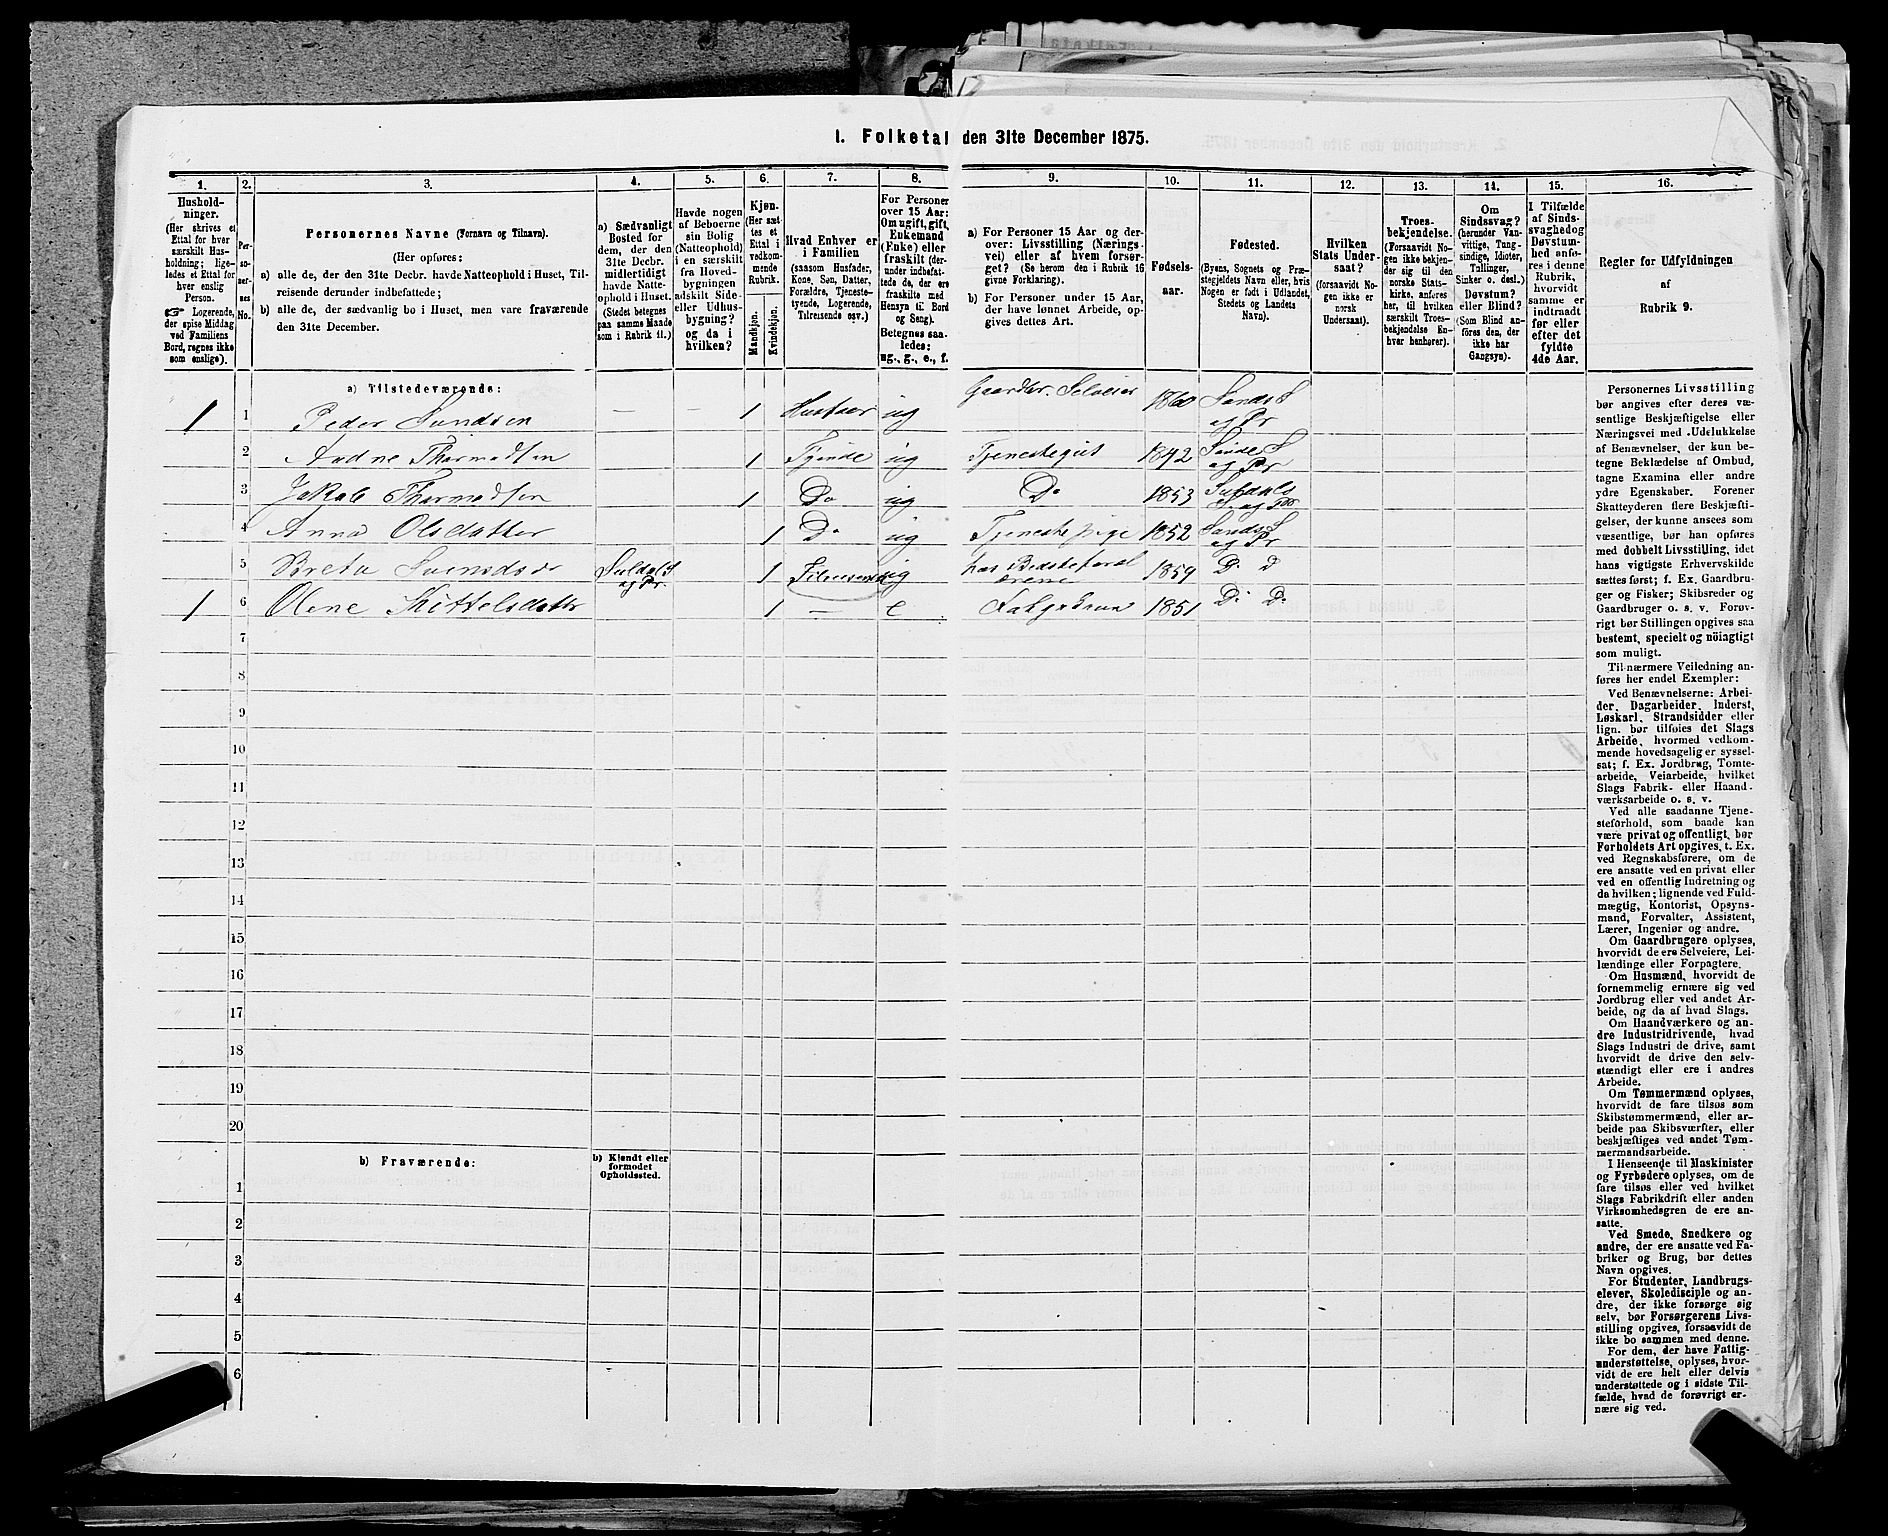 1. Folketal den 31te December 1875.
1.
2.
3.
4.
5.
6.
7.
8.
9.
10.
11.
12.
13.
14.
15.
16.
Hushold-
ninger.
(Her skrives et
Ettal for hver
særskilt Hus-
holdning; lige-
ledes et Ettal for
hver enslig
Person.
☞ Logerende,
der spise Middag
ved Familiens
Bord, regnes ikke
som enslige).
Per-
so-
ner-
nes
No.
Personernes Navne (Fornavn og Tilnavn).
(Her opføres:
a) alle de, der den 31te Decbr. havde Natteophold i Huset, Til-
reisende derunder indbefattede;
b) alle de, der sædvanlig bo i Huset, men vare fraværende
den 31te December.
a) Sædvanligt
Bosted for
dem, der den
31te Decbr.
midlertidigt
havde Natte-
ophold i Huset.
(Stedet betegnes
paa samme Maade
som i Rubrik 11.)
Havde nogen
af Beboerne
sin Bolig
(Natteophold)
i en særskilt
fra Hoved-
bygningen
adskilt Side-
eller Udhus-
bygning?
og da i
hvilken?
Kjøn.
(Her sæt-
tes et
Ettal i
vedkom-
mende
Rubrik.
Mandkjøn.
Kvindekjøn.
Hvad Enhver er
i Familien
(saasom Husfader,
Kone, Søn, Datter,
Forældre, Tjeneste-
tyende, Logerende,
Tilreisende osv.)
For Personer
over 15 Aar:
Om ugift, gift,
Enkemand
(Enke) eller
fraskilt (der-
under indbefat-
tede de, der ere
fraskilte med
Hensyn til Bord
og Seng).
Betegnes saa-
ledes:
ug., g., e., f.
a) For Personer 15 Aar og der-
over: Livsstilling (Nærings-
vei) eller af hvem forsør-
get? (Se herom den i Rubrik 16
givne Forklaring).
b) For Personer under 15 Aar,
der have lønnet Arbeide, op-
gives dettes Art.
Fødsels-
aar.
Fødested.
(Byens, Sognets og Præ-
stegjeldets Navn eller, hvis
Nogen er født i Udlandet,
Stedets og Landets
Navn).
Hvilken
Stats Under-
saat?
(forsaavidt No-
gen ikke er
norsk
Undersaat).
Troes-
bekjendelse.
(Forsaavidt No-
gen ikke bekjen-
der sig til den
norske Stats-
kirke, anføres
her, til hvilken
særskilt Troes-
bekjendelse En-
hver henhører).
Om
Sindssvag?
(herunder Van-
vittige, Tung-
sindige, Idioter,
Tullinger,
Sinker o. desl.)
Døvstum?
eller Blind?
(Som Blind an-
føres den, der
ikke har
Gangsyn).
I Tilfælde
af Sinds-
svaghed og
Døvstum-
hed anfø-
res i denne
Rubrik,
hvorvidt
samme er
indtraadt
før eller
efter det
fyldte
4de Aar.
Regler for Udfyldningen
af
Rubrik 9.
a) Tilstedeværende:
1 1 Peder Svendsen — — 1 Husfaer ug Gaardbr. Selveier 1860 Sands S og Pr
2 Aadne Thormodsen 1 Tjende ug Tjenestegut 1842 S og Pr
3 Jakob Thormodsen 1 Do ug Do 1853 Suldals S. og Pr
4 Anna Olsdatter 1 Do ug Tjenestepige 1852 Sands S og Pr
5 Svendsdr Suldals S og Pr. 1 ug hos Bedsteforæl drene 1859 Do Do
1 6 Olene Kittelsdatter 1 — e 1851 Do Do
7
8
9
10
11
12
13
14
15
16
17
18
19
20
b) Fraværende:
b) Kjendt eller
formodet
Opholdssted.
1
2
3
4
5
6
Personernes Livsstilling
bør angives efter deres væ-
sentlige Beskjæftigelse eller
Næringsvei med Udelukkelse
af Benævnelser, der kun be-
tegne Beklædelse af Ombud,
tagne Examina eller andre
ydre Egenskaber. Forener
Skatteyderen flere Beskjæfti-
gelser, der kunne ansees som
væsentlige, bør han opføres
med dobbelt Livsstilling, idet
hans vigtigste Erhvervskilde
sættes først; f. Ex. Gaardbru-
ger og Fisker; Skibsreder og
Gaardbruger o. s. v. Forøv-
rigt bør Stillingen opgives saa
bestemt, specielt og nöiagtigt
som muligt.
Til nærmere Veiledning an-
føres her endel Exempler:
Ved Benævnelserne: Arbei-
der, Dagarbeider, Inderst,
Løskarl, Strandsidder eller
lign. bør tilføies det Slags
Arbeide, hvormed vedkom-
mende hovedsagelig er syssel-
sat; f. Ex. Jordbrug, Tomte-
arbeide, Veiarbeide, hvilket
Slags Fabrik- eller Haand-
værksarbeide o. s. v.
Ved alle saadanne Tjene-
steforhold, som baade kan
være privat og offentligt, bør
Forholdets Art opgives, t. Ex.
ved Regnskabsførere, om de
ere ansatte ved en privat eller
ved en offentlig Indretning og
da hvilken; lignende ved Fuld-
mægtig, Kontorist, Opsyns-
mand, Forvalter, Assistent,
Lærer, Ingeniør og andre.
Om Gaardbrugere oplyses,
hvorvidt de ere Selveiere, Lei-
lændinge eller Forpagtere.
Om Husmænd, hvorvidt de
fornemmelig ernære sig ved
Jordbrug eller ved andet Ar-
beide, og da af hvad Slags.
Om Haandværkere og an-
dre Industridrivende, hvad
Slags Industri de drive, samt
hvorvidt de drive den selv-
stændigt eller ere i andres
Arbeide.
Om Tømmermænd oplyses,
hvorvidt de fare tilsøs som
Skibstømmermænd, eller ar-
beide paa Skibsværfter, eller
beskjæftiges ved andet Tøm-
mermandsarbeide.
I Henseende til Maskinister
og Fyrbødere oplyses, om de
fare tilsøs eller ved hvilket
Slags Fabrikdrift eller anden
Virksomhedsgren de ere an-
satte.
Ved Smede, Snedkere og
andre, der ere ansatte ved Fa-
briker og Brug, bør dettes
Navn opgives.
For Studenter, Landbrugs-
elever, Skoledisciple og an-
dre, der ikke forsørge sig
selv, bør Forsørgerens Livs-
stilling opgives, forsaavidt de
ikke bo sammen med denne.
For dem, der have Fattig-
understøttelse, oplyses, hvor-
vidt de ere helt eller delvis
understøttede og i sidste Til-
fælde, hvad de forøvrigt er-
nære sig ved.